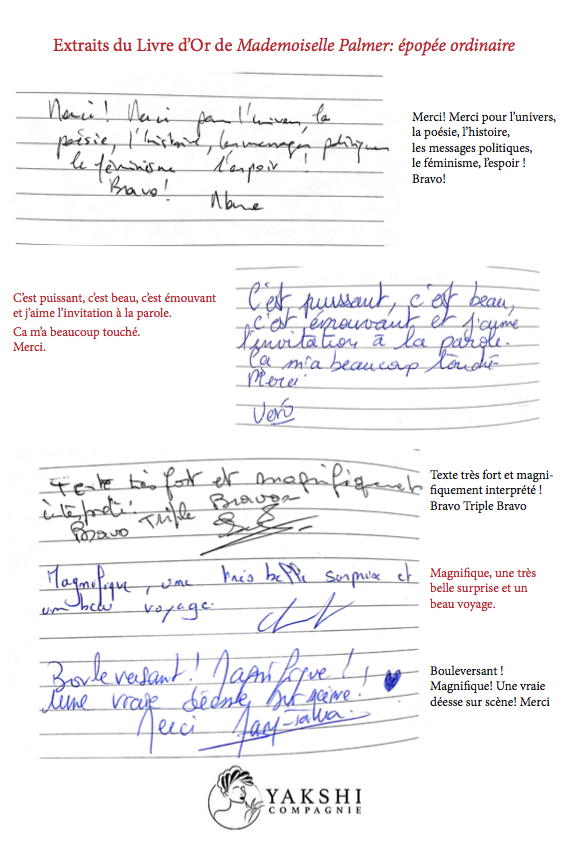 Extraits du Livre d'Or de Mademoiselle Palmer: épopée ordinaire
Merci! Merci pour l'univers, la
poésie, l'histoire, les messages politiques
le féminisme l'espoir !
Bravo!
Merci! Merci pour l'univers,
la poésie, l'histoire,
les messages politiques,
le féminisme, l'espoir !
Bravo!
C'est puissant, c'est beau, c'est émouvant
et j'aime l'invitation à la parole.
Ca m'a beaucoup touché.
Merci.
C'est puissant, c'est beau,
c'est émouvant et j'aime
l'invitation à la parole.
Ca m'a beaucoup touché
Merci
Véro
Texte très fort et magnifiquement
interprété! Bravos
Bravo Triple
Texte très fort et magni-
fiquement interprété !
Bravo Triple Bravo
Magnifique, une très belle surprise et
un beau voyage.
Magnifique, une très
belle surprise et un
beau voyage.
Bouleversant! Magnifique!
Une vraie déesse sur scène!
Merci
Bouleversant !
Magnifique! Une vraie
déesse sur scène! Merci
YAKSHI
COMPAGNIE